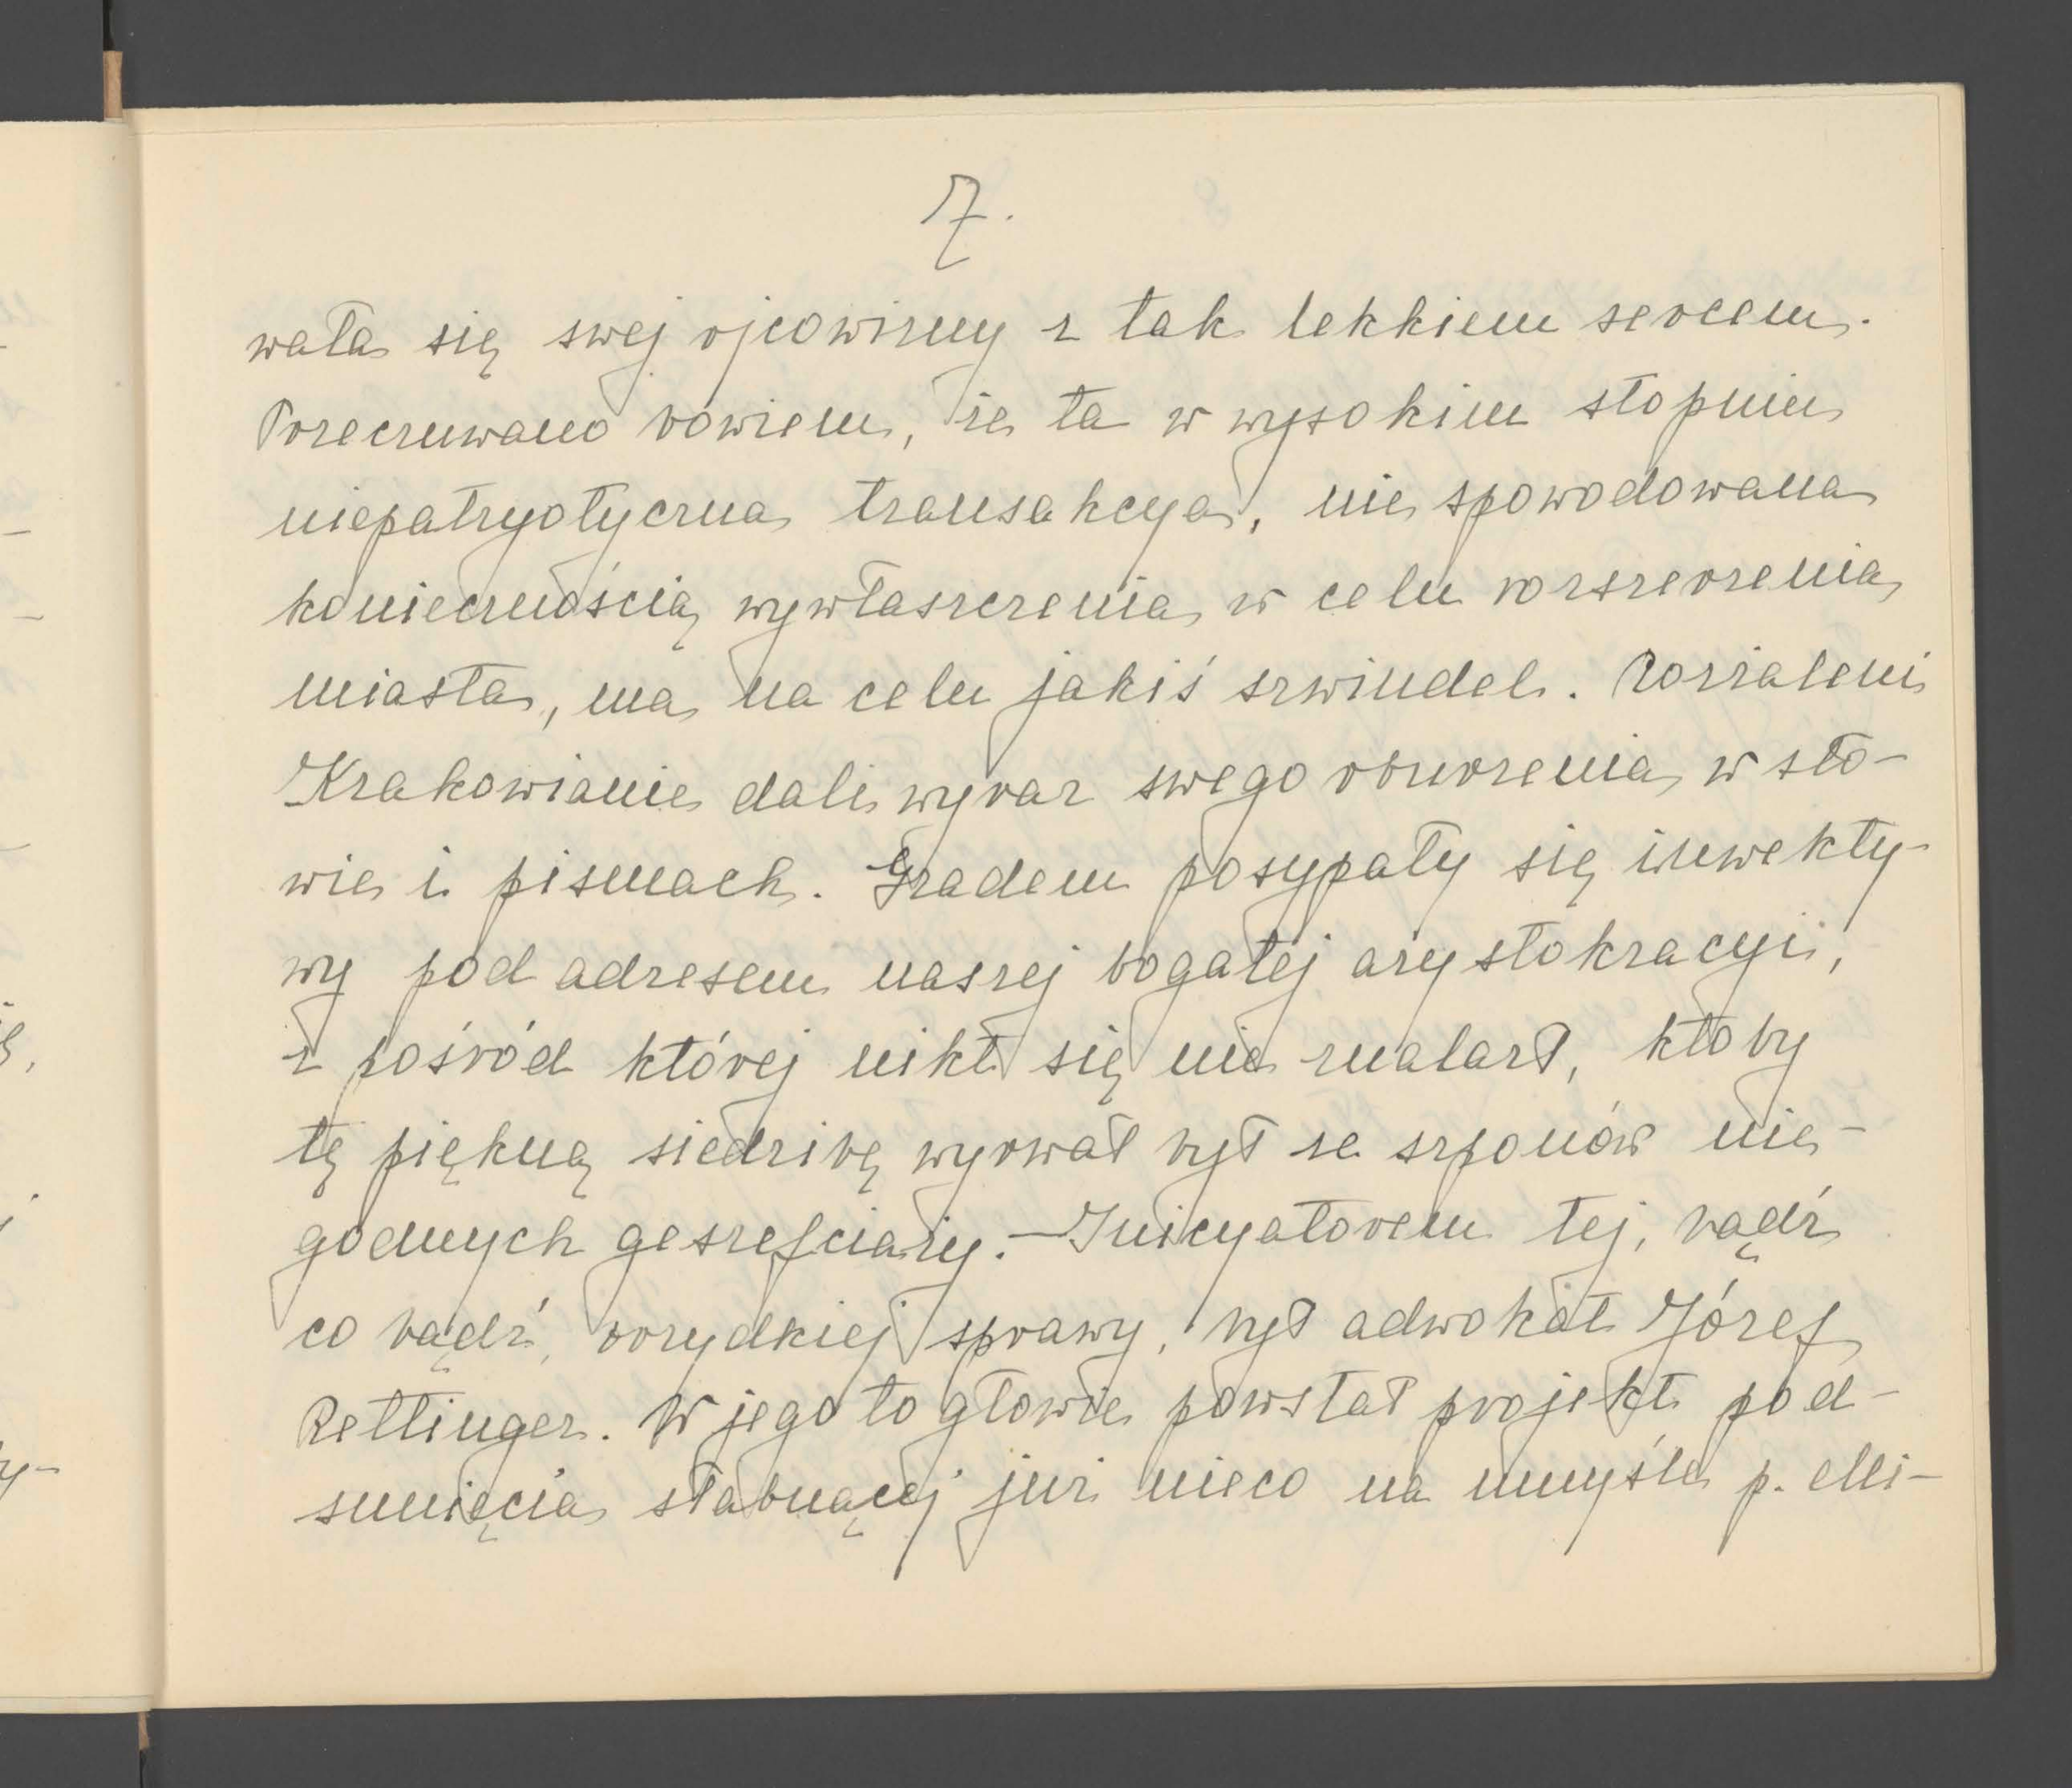 7.
wała się swej ojcowizny z tak lekkiem sercem.
Przeczuwano bowiem, że ta w wysokim stopniu
niepatryotyczna transakcya, nie spowodowana
koniecznością wywłaszczenia w celu rozszerzenia
miasta, ma na celu jakiś szwindel. Rozżaleni
Krakowianie dali wyraz swego oburzenia w sło-
wie i pismach. Gradem posypały się inwekty-
wy pod adresem naszej bogatej arystokracyi,
z pośród której nikt się nie znalazł, ktoby
tę piękną siedzibę wyrwał był ze szponów nie-
godnych geszefciarzy. - Inicyatorem tej, bądź
co bądź, brzydkiej sprawy, był adwokat Józef
Rettinger. W jego to głowie powstał projekt pod-
sunięcia słabnącej już nieco na umyśle p. Mi-